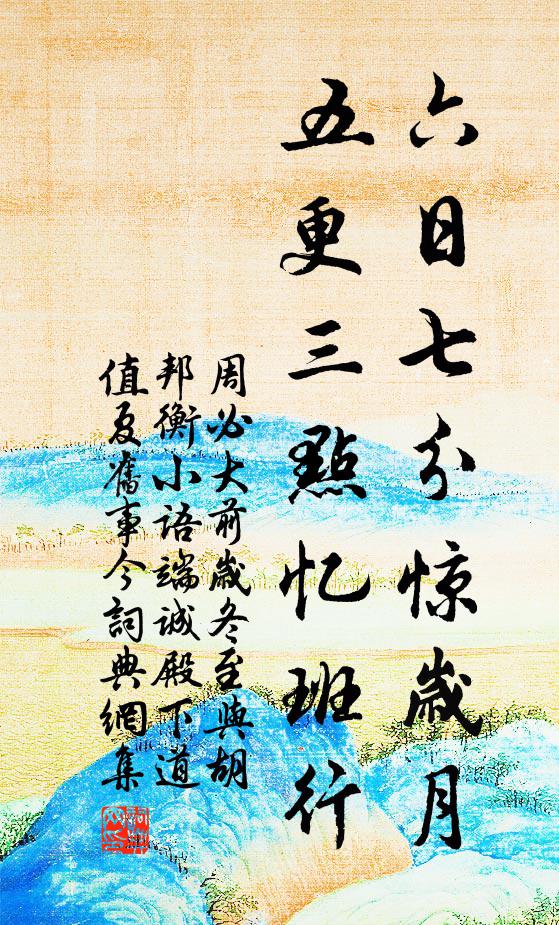 六日七分惊歲月
五更三點忆班行
周必大前歲冬至與胡
邦衡小语端诚殿下道
值夏舊事今詞典網集